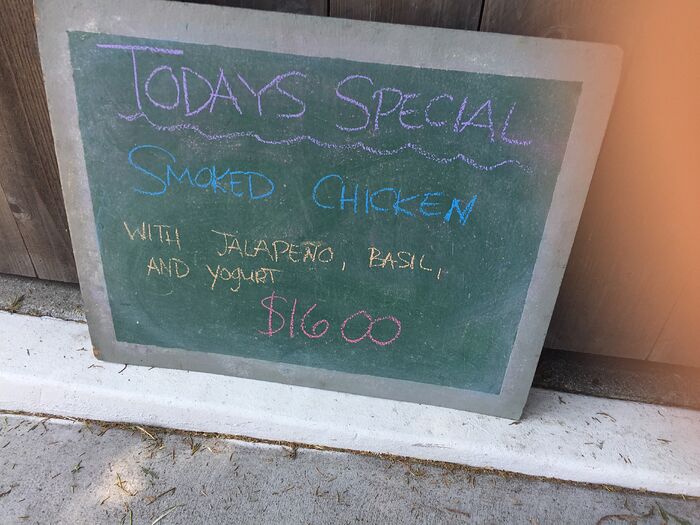 TODAYS SPECIAL
SMOKED CHICKEN
WITH JALAPEÑO, BASIL,
AND YOGURT
$16 00